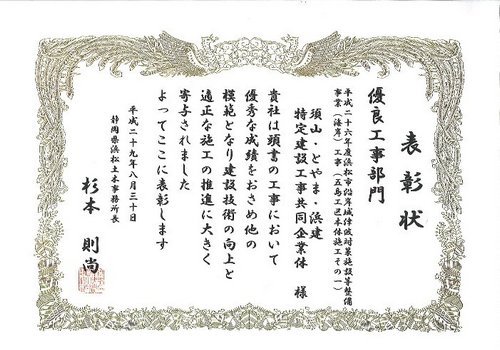 表彰状
優良工事部門
平成二十六年度浜松市沿岸域津波対策施設等整備
事業(海岸)工事(五島工区本体施工その一)
須山・とやま・浜建
特定建設工事共同企業体 様
貴社は頭書の工事において
優秀な成績をおさめ他の
模範となり建設技術の向上と
適正な施工の推進に大きく
寄与されました
よってここに表彰します
平成二十九年八月三十日
静岡県浜松土木事務所長
杉本 則尚